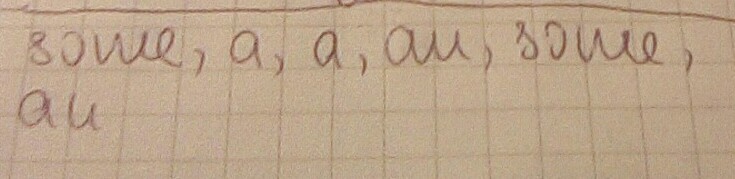 some, a, a, an, some,
an